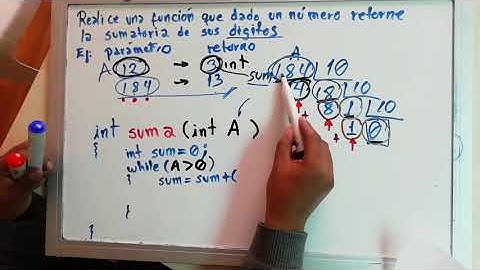 Realice una función que dado un número retorne
la sumatoria de sus dígitos
Ej: parametro retorno
A 12 → 3 int
184 → 13
A
sum 184 | 10
4 18 | 10
8 1 | 10
1 0
+ + +
int suma (int A)
{ int sum=0;
while (A>0)
{ sum = sum+(
}
}